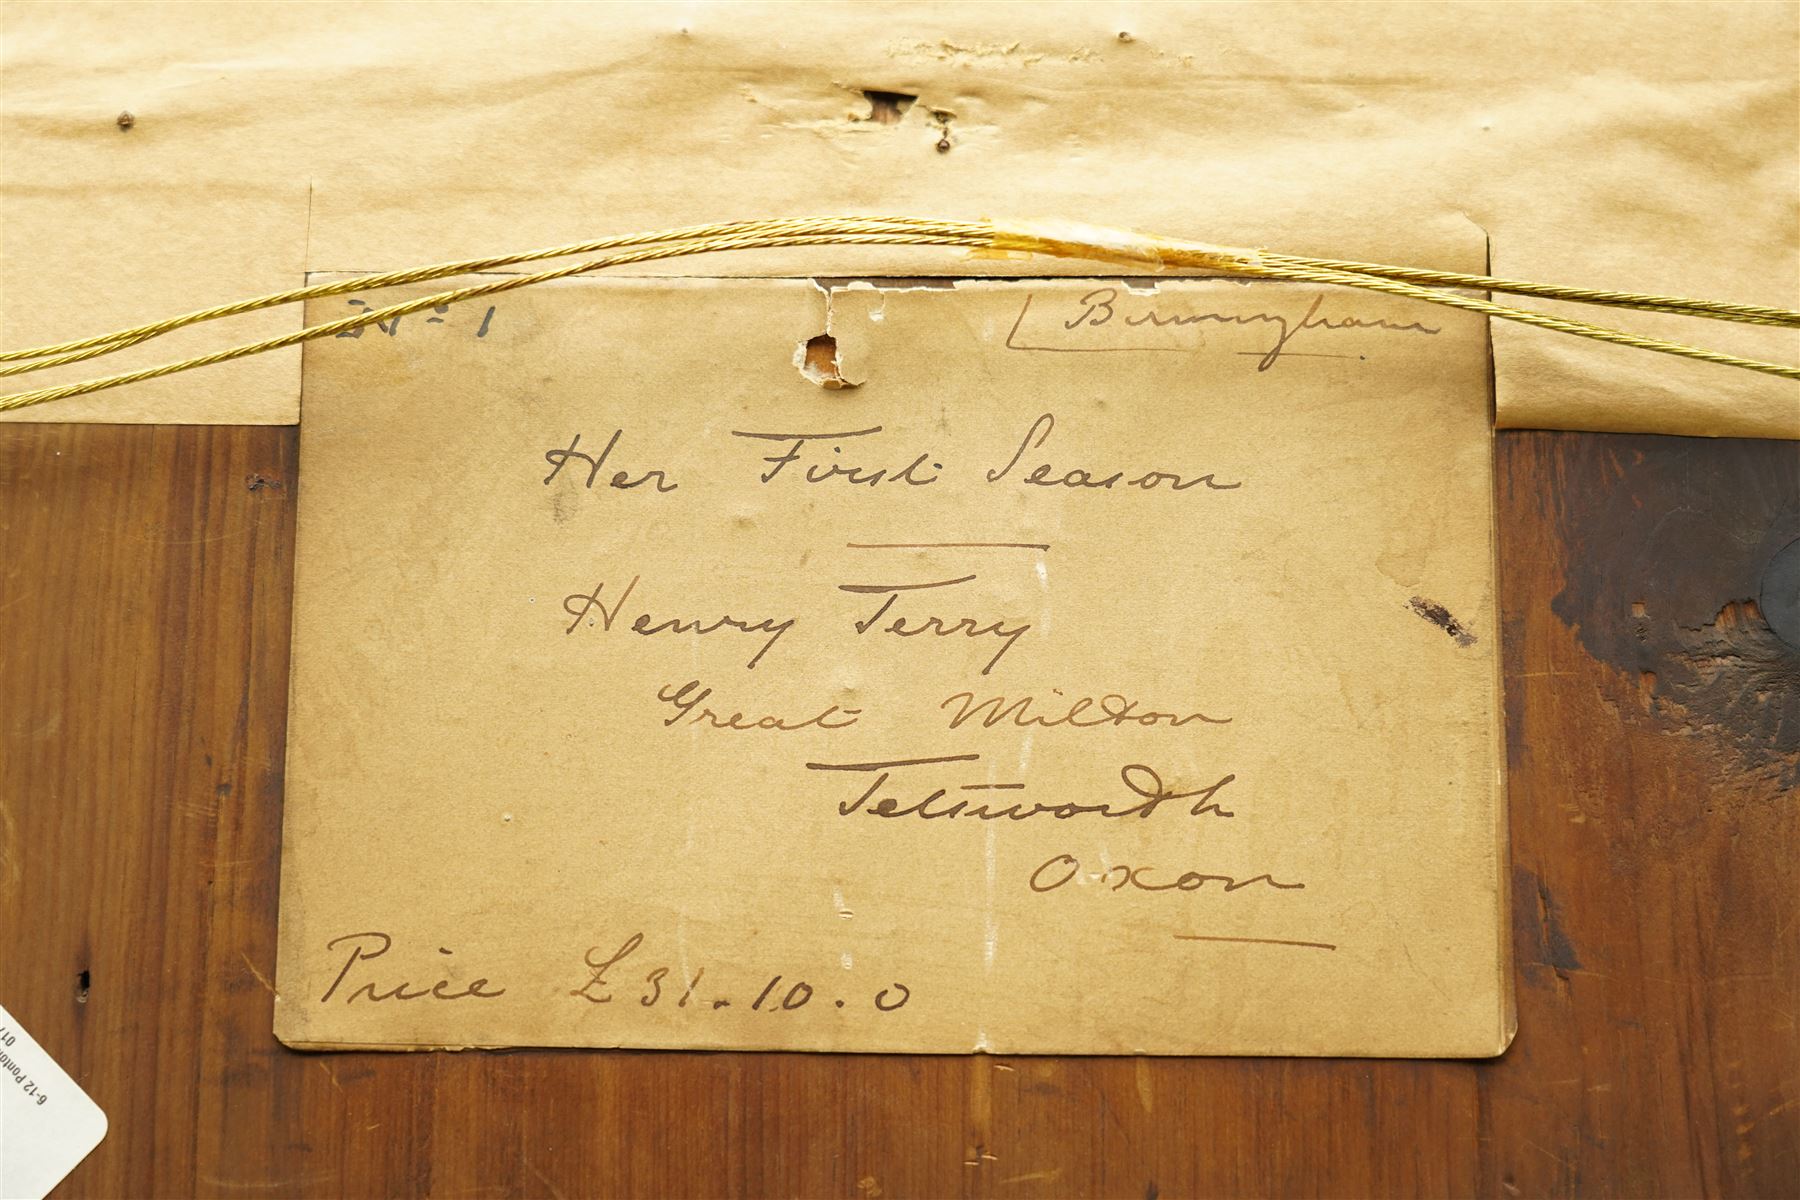 No 1
Birmingham
Her First Season
Henry Terry
Great Milton
Tetsworth
Oxon
Price £31.10.0
6-12 Ponton
017